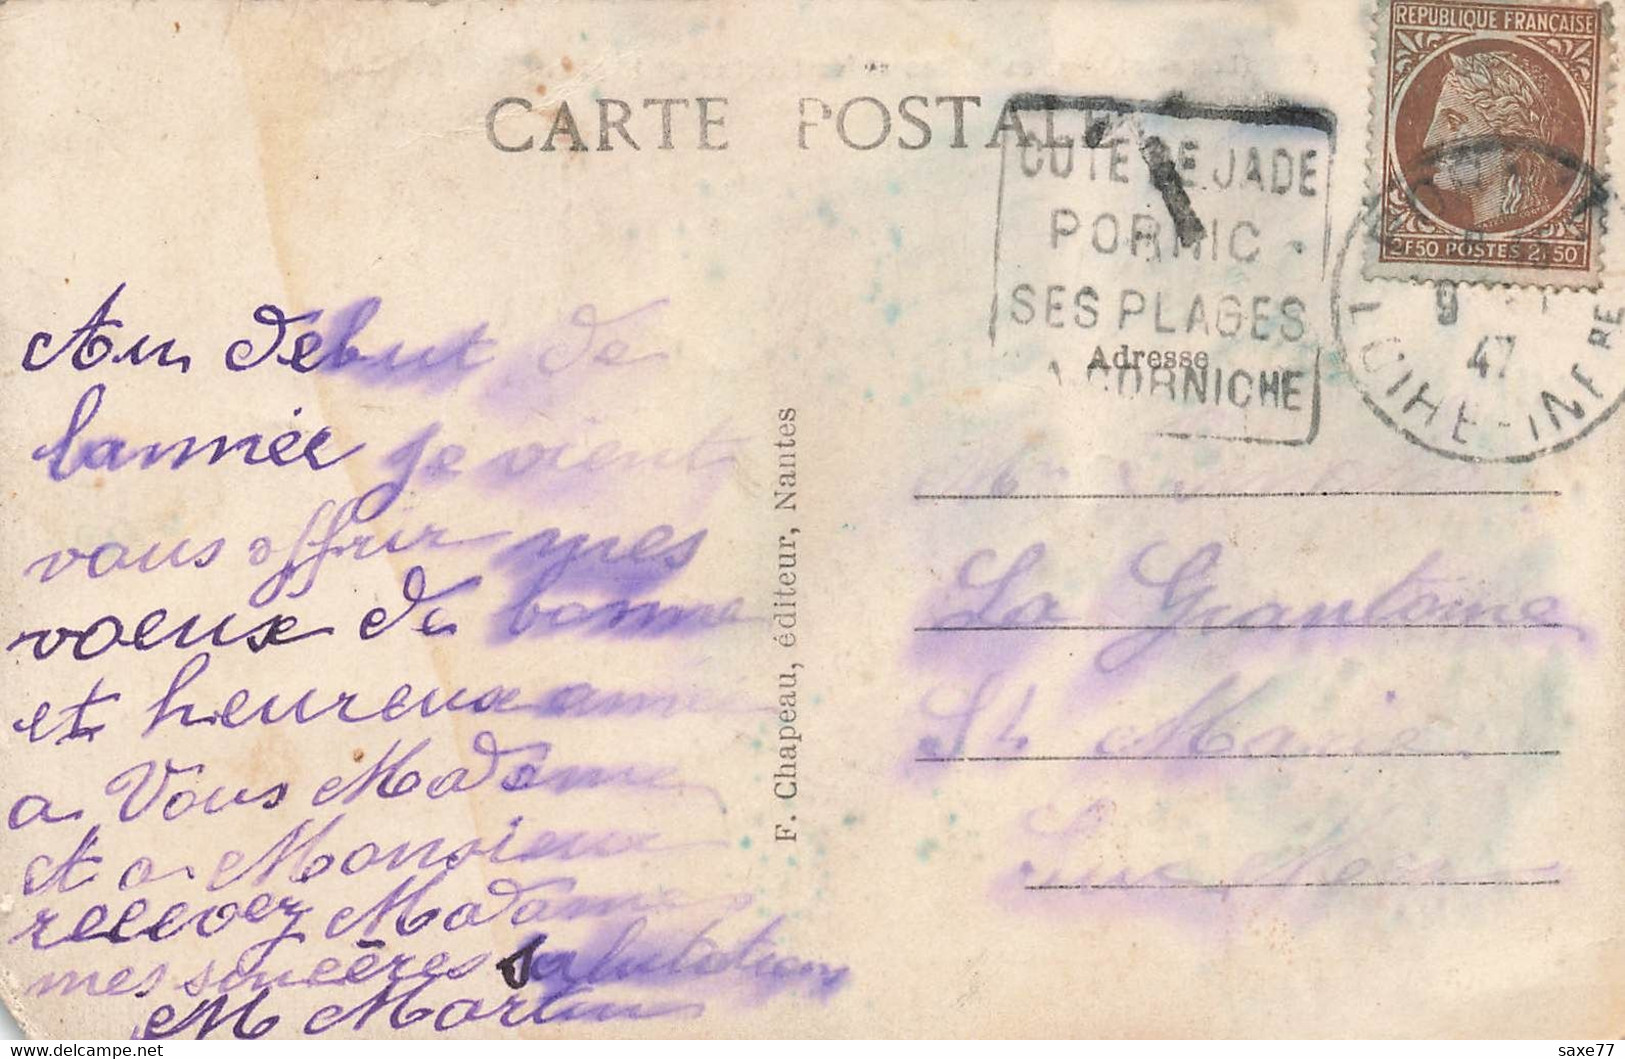 CARTE POSTALE
REPUBLIQUE FRANÇAISE
2F50 POSTES 2F50
COTE DE JADE
PORNIC
SES PLAGES
LA CORNICHE
9
47
LOIRE-INFRE
Adresse
F. Chapeau, éditeur, Nantes
Au début de
lannée je viens
vous offrir mes
voeux de bonne
et heureuse année
a Vous Madame
et a Monsieur
recevez Madame
mes sincères salutations
M Martin
La
Ste Marie
sur Mer
www.delcampe.net
saxe77